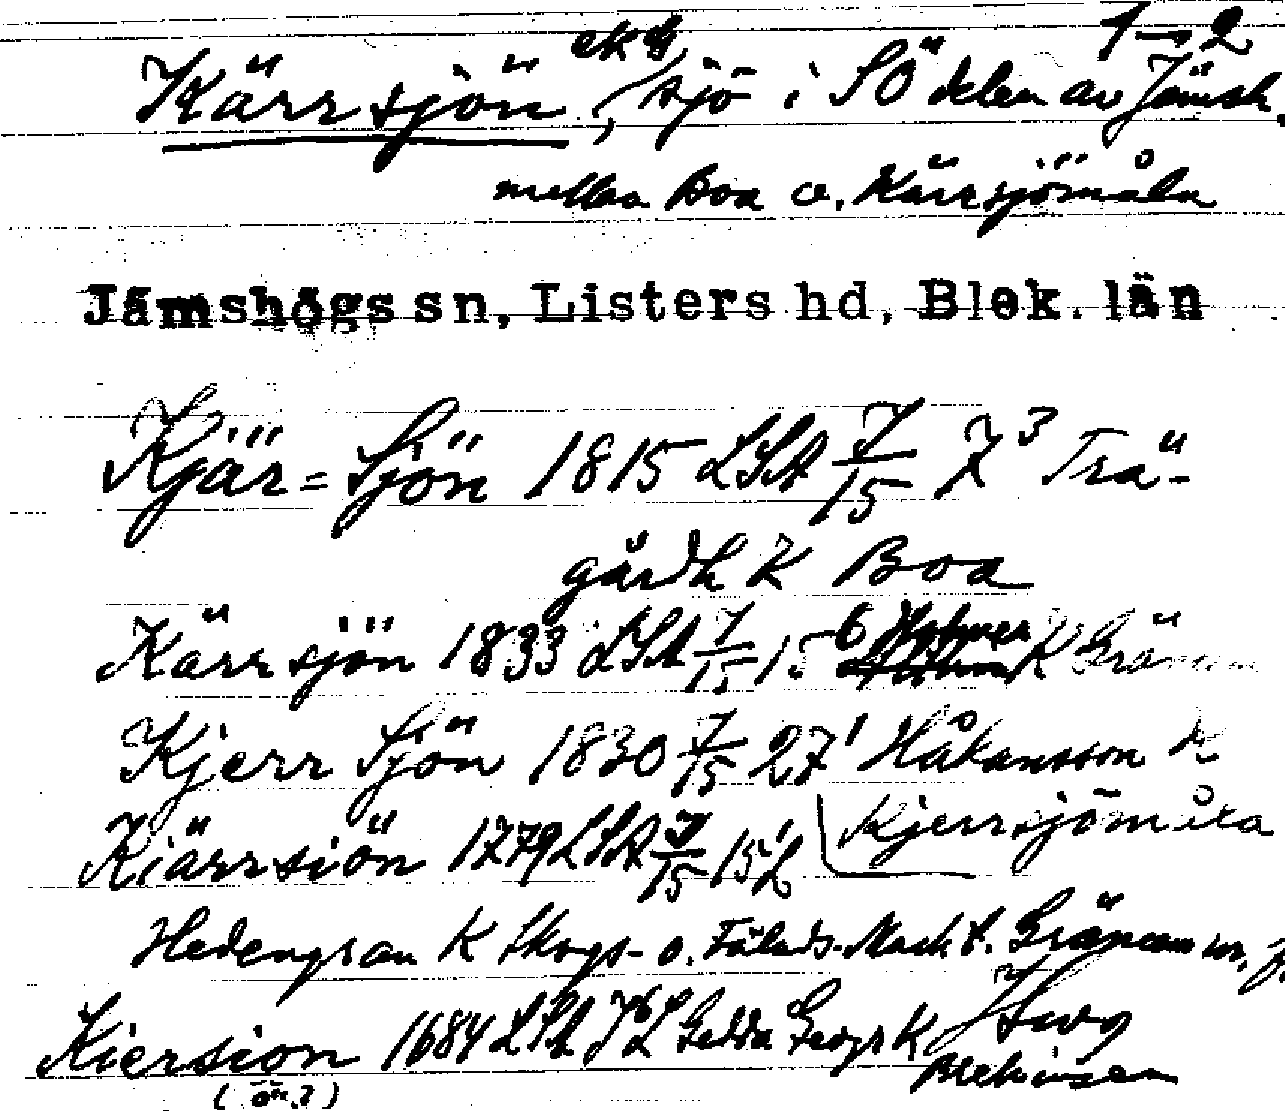 1→2
Kärrsjön, sjö i SÖ delen av Jämsh.
mellan Boa o. Kärrsjömåla
Jämshögs sn, Listers hd, Blek. län
Kjär=Sjön 1815 LSA 7/15 7³ Trä-
gårdh K Boa
Kärrsjön 1833 LSA 7/15 15⁶ K Gränum
Kjerr Sjön 1830 7/15 27¹ Håkansson K
Kjerrsjömåla
Kiärrsiön 1779 LSA 7/15 15¹ L
Hedengran K Skogs- o. Fälads-Mark t. Gränum
Kiersion 1684 LSA Gedda K
Blekinsem
(ön?)